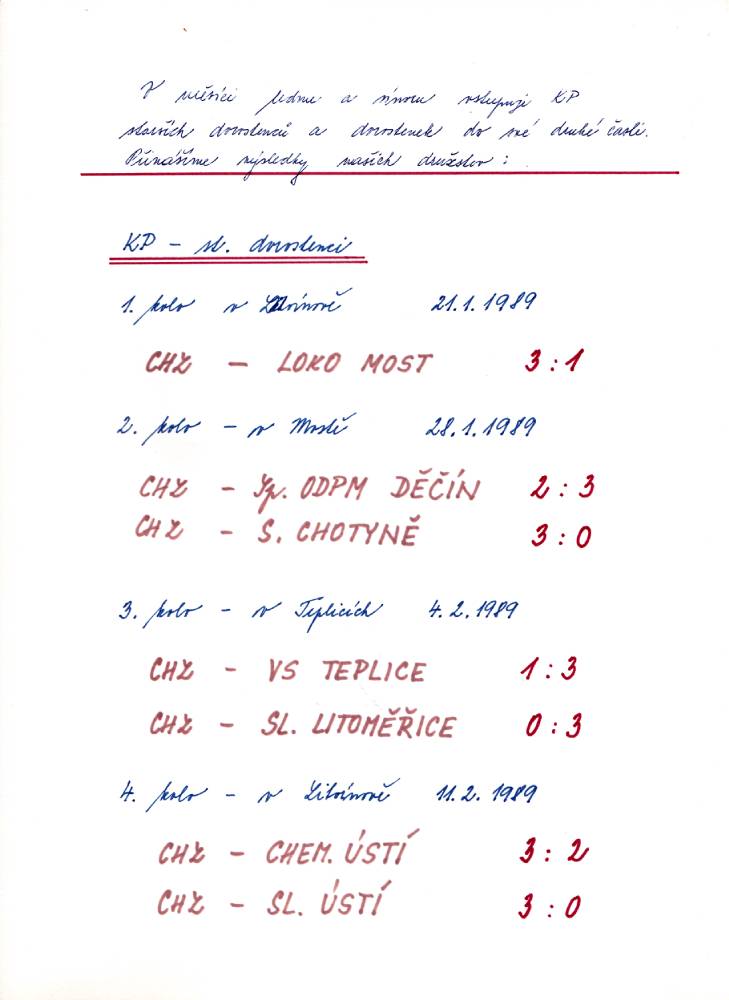 V měsíci lednu a únoru vstupuje KP
starších dorostenců a dorostenek do své druhé části.
Přinášíme výsledky našich družstev :
KP - st. dorostenci
1. kolo v Litvínově 21.1.1989
CHZ - LOKO MOST 3 : 1
2. kolo - v Mostě 28.1.1989
CHZ - Sp. ODPM DĚČÍN 2 : 3
CHZ - S. CHOTYNĚ 3 : 0
3. kolo - v Teplicích 4.2.1989
CHZ - VS TEPLICE 1 : 3
CHZ - SL. LITOMĚŘICE 0 : 3
4. kolo - v Litvínově 11.2.1989
CHZ - CHEM. ÚSTÍ 3 : 2
CHZ - SL. ÚSTÍ 3 : 0